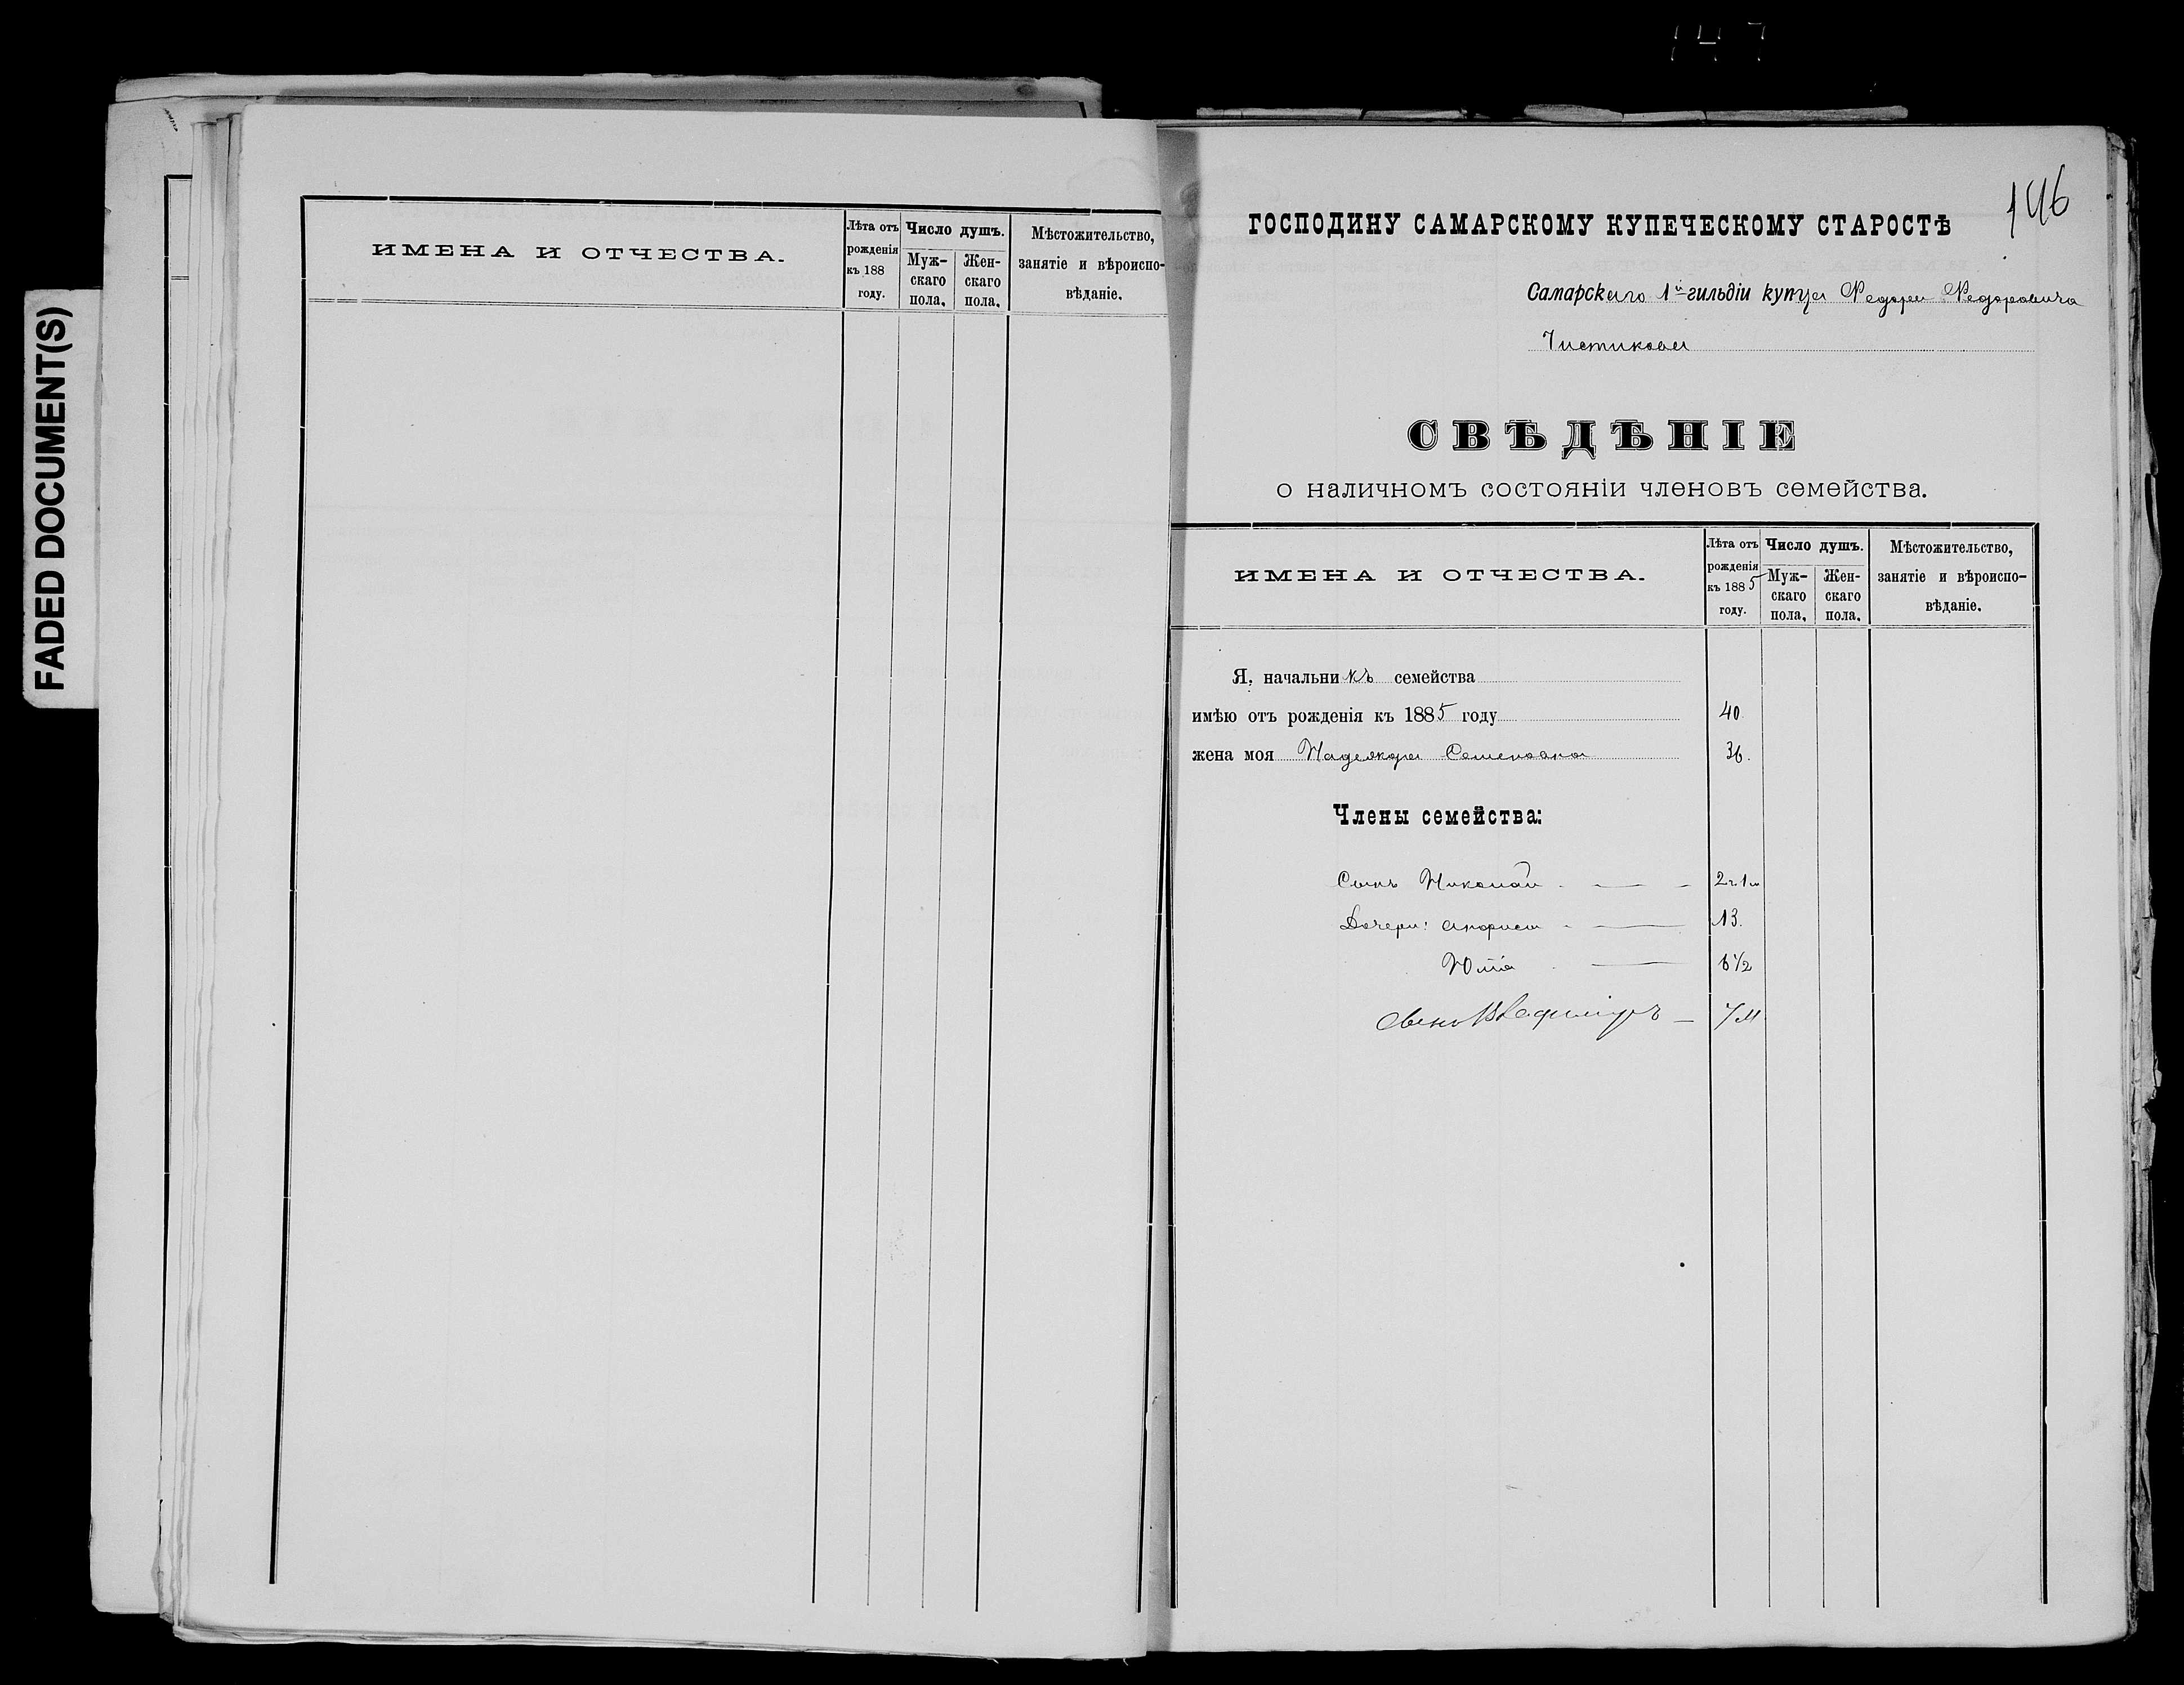 147
FADED DOCUMENT(S)
ИМЕНА И ОТЧЕСТВА.
Лѣта отъ рожденія къ 188 году.
Число душъ.
Мужскаго пола.
Женскаго пола.
Мѣстожительство, занятіе и вѣроисповѣданіе.
146
ГОСПОДИНУ САМАРСКОМУ КУПЕЧЕСКОМУ СТАРОСТѢ
Самарскаго 1й гильдіи купца Федора Федоровича
Чистикова
СВѢДѢНІЕ
о наличномъ состояніи членовъ семейства.
ИМЕНА И ОТЧЕСТВА.
Лѣта отъ рожденія къ 1885 году.
Число душъ.
Мужскаго пола.
Женскаго пола.
Мѣстожительство, занятіе и вѣроисповѣданіе.
Я, начальникъ семейства
имѣю отъ рожденія къ 1885 году 40
жена моя Надежда Семеновна 36.
Члены семейства:
Сынъ Николай 2г. 1м
Дочери: 13.
Юлія 6 1/2
Владиміръ 7м